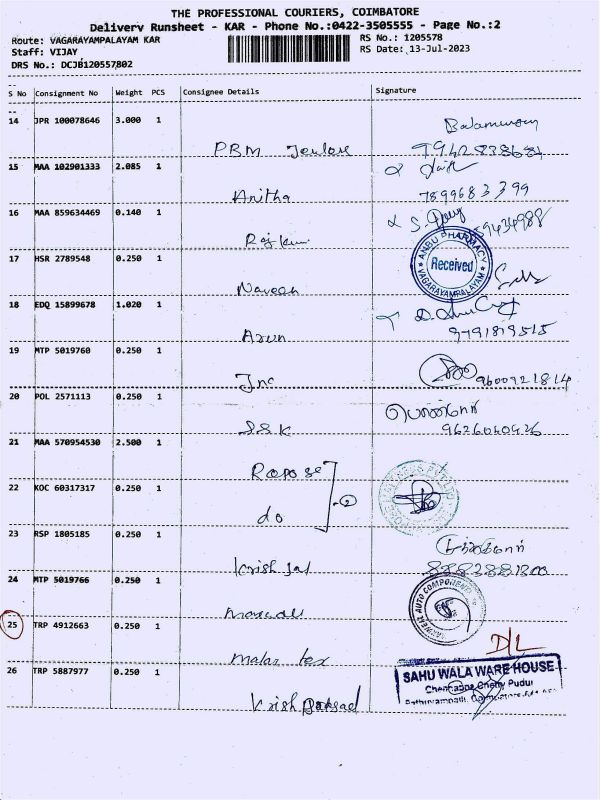 THE PROFESSIONAL COURIERS, COIMBATORE
Delivery Runsheet - KAR - Phone No.:0422-3505555 - Page No.:2
Route: VAGARAYAMPALAYAM KAR
RS No.: 1205578
Staff: VIJAY
RS Date: 13-Jul-2023
DRS No.: DCJB120557802
S No Consignment No Weight PCS Consignee Details Signature
14 JPR 100078646 3.000 1
PBM
15 MAA 102901333 2.085 1
Anitha 7899683399
16 MAA 859634469 0.140 1
Rajkumar
ANBU PHARMACY
Received
VAGARAYAMPALAYAM
17 HSR 2789548 0.250 1
Naveen
18 EDQ 15899678 1.020 1
Arun 9791819515
19 MTP 5019760 0.250 1
Jnc 9600921814
20 POL 2571113 0.250 1
SSK 9626040426
21 MAA 570954530 2.500 1
Ropose
22 KOC 60317317 0.250 1
do 2
23 RSP 1805185 0.250 1
24 MTP 5019766 0.250 1
AUTO COMPONENTS
25 TRP 4912663 0.250 1
Malar tex D/L
26 TRP 5887977 0.250 1
SAHU WALA WARE HOUSE
Krish